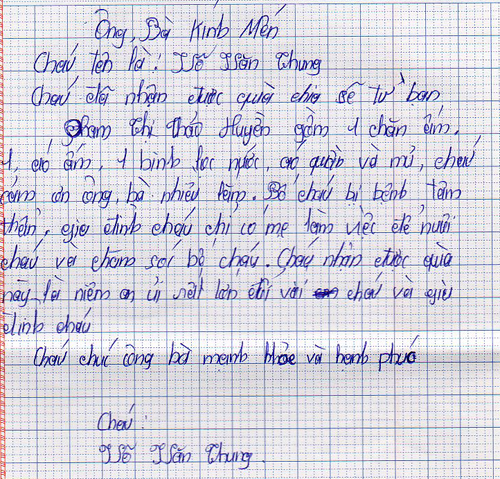 Ông, Bà Kính Mến
Cháu tên là: Võ Văn Chung
Cháu đã nhận được quà chia sẽ từ bạn
Phạm Thị Thảo Huyền gồm 1 chăn ấm,
1, áo ấm, 1 bình lọc nước, áo quần và mủ, cháu
cảm ơn ông, bà nhiều lắm. Bố cháu bị bệnh tâm
thần, gia đình cháu chỉ có mẹ làm việc để nuôi
cháu và chăm soi bố cháu. Cháu nhận được quà
này là niềm an ủi rất lớn đối với cháu và gia
đình cháu
Cháu chúc ông bà mạnh khỏe và hạnh phúc
Cháu:
Võ Văn Chung.